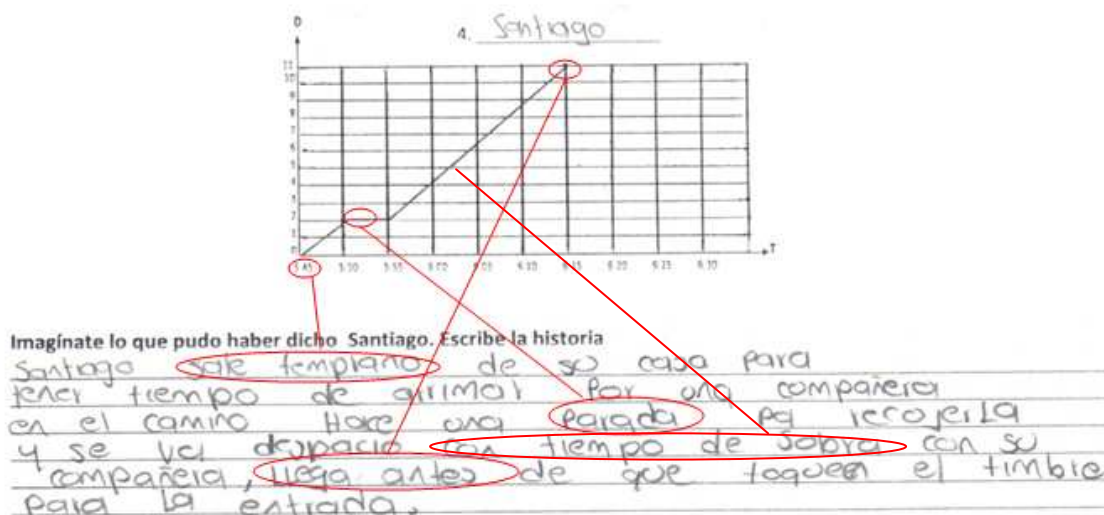 D
4. Santiago
11
10
9
8
7
6
5
4
3
2
1
0
T
5:45 5:50 5:55 6:00 6:05 6:10 6:15 6:20 6:25 6:30
Imagínate lo que pudo haber dicho Santiago. Escribe la historia
Santiago sale temprano de su casa para
tener tiempo de arrimar por una compañera
en el camino Hace una parada pa recojerla
y se va despacio con tiempo de sobra con su
compañera, llega antes de que toquen el timbre
para la entrada.